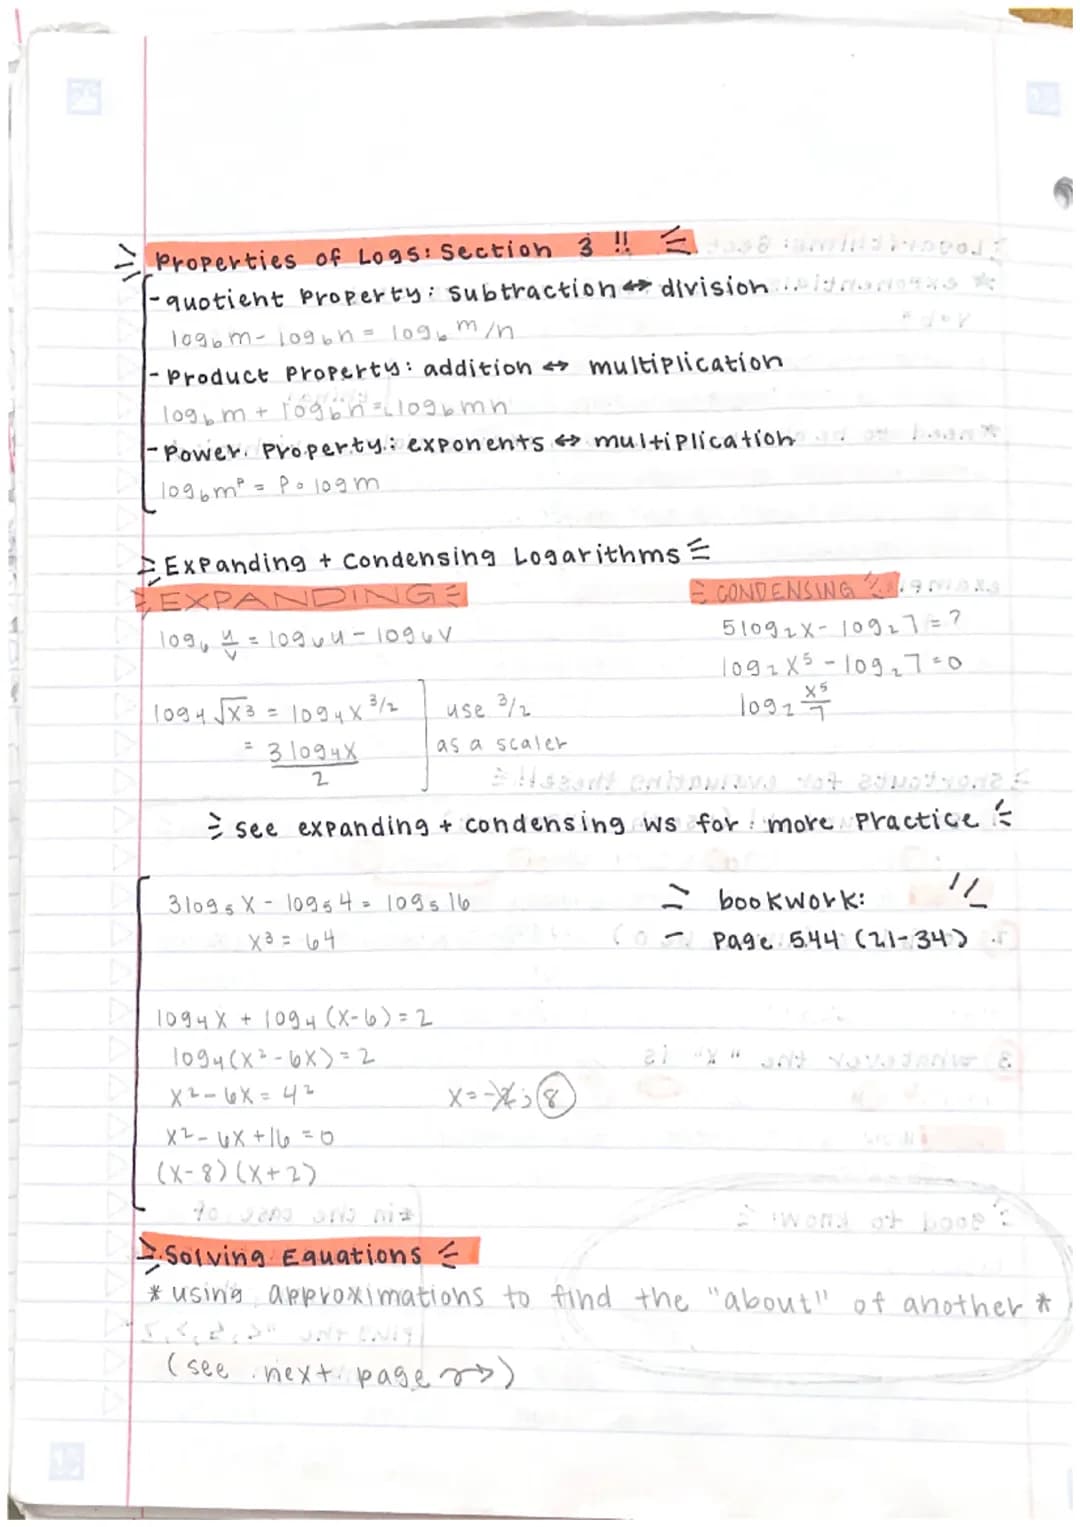 Properties of Logs: Section 3 !!
- quotient Property: Subtraction ↔ division
log_b m - log_b n = log_b m/n
- Product Property: addition ↔ multiplication
log_b m + log_b n = log_b mn
- Power Property: exponents ↔ multiplication
log_b m^p = P • log m
Expanding + Condensing Logarithms
EXPANDING
log_b u/v = log_b u - log_b v
log_4 √x^3 = log_4 x^3/2
= 3 log_4 x / 2
use 3/2
as a scaler
CONDENSING
5 log_2 x - log_2 7 = ?
log_2 x^5 - log_2 7 = 0
log_2 x^5/7
see expanding + condensing ws for more Practice
3 log_5 x - log_5 4 = log_5 16
x^3 = 64
bookwork:
Page 544 (21-34)
log_4 x + log_4 (x-6) = 2
log_4 (x^2 - 6x) = 2
x^2 - 6x = 4^2
x = -2; 8
x^2 - 6x + 16 = 0
(x-8)(x+2)
Solving Equations
* using approximations to find the "about" of another *
(see next page →)